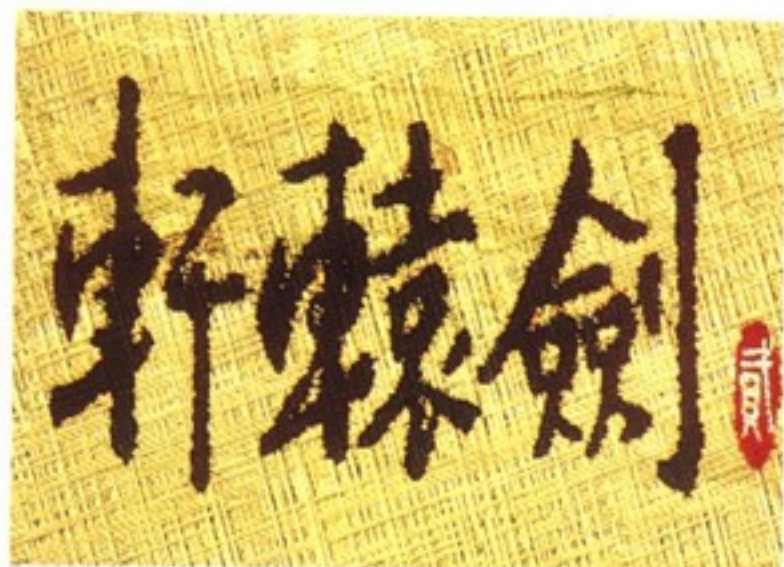 軒轅劍
貳